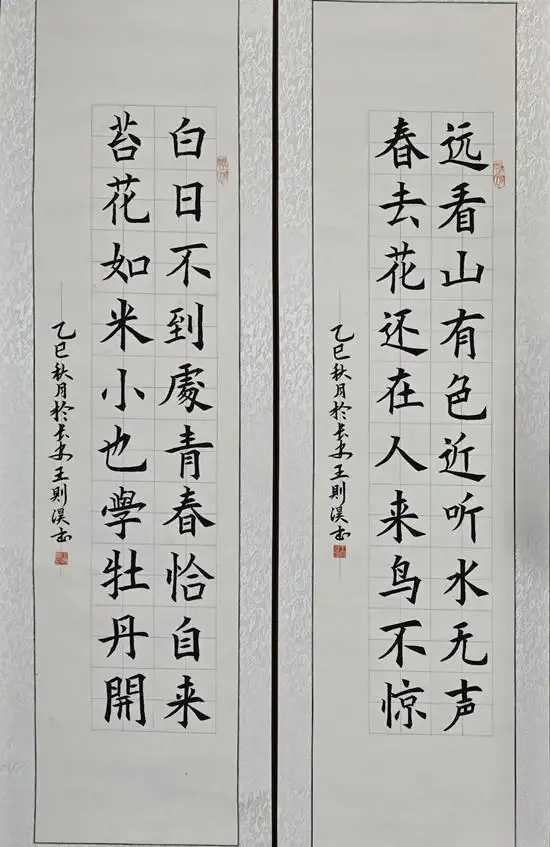 远看山有色近听水无声
春去花还在人来鸟不惊
乙巳秋月於长安王則淏书
白日不到處青春恰自来
苔花如米小也學牡丹開
乙巳秋月於长安王則淏书